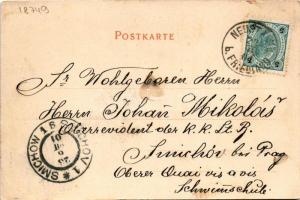 18749
POSTKARTE
Sr Wohlgeboren Herrn
Herrn Johan Mikoláš
Oberrevident der k. k. St. B.
Smichov bei Prag
Oberer Quai vis a vis
Schwimschule.
SMICHOV 1